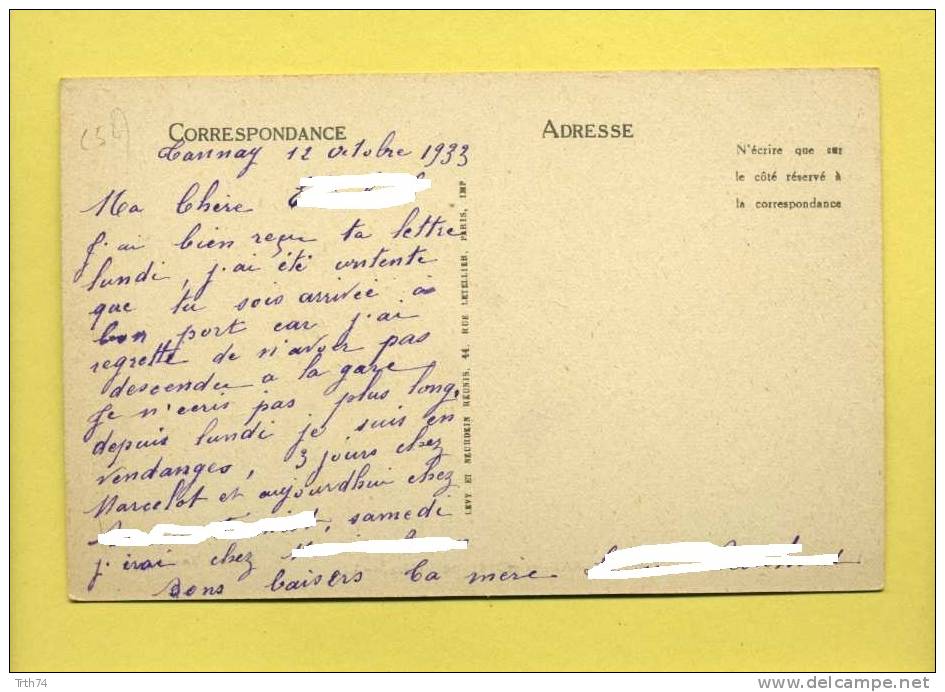 (58)
CORRESPONDANCE
Tannay 12 octobre 1933
Ma Chère
J'ai bien reçu ta lettre
lundi, j'ai été contente
que tu sois arrivée à
bon port car j'ai
regretté de n'avoir pas
descendu a la gare
Je n'écris pas plus long,
depuis lundi je suis en
vendanges, 3 jours chez
Marcelot et aujourdhui chez
, samedi
j'irai chez
Bons baisers Ta mère
LEVY ET NEURDEIN REUNIS, 44, RUE LETELLIER, PARIS, IMP
ADRESSE
N'écrire que sur
le côté réservé à
la correspondance
Trth74
delcampe.net